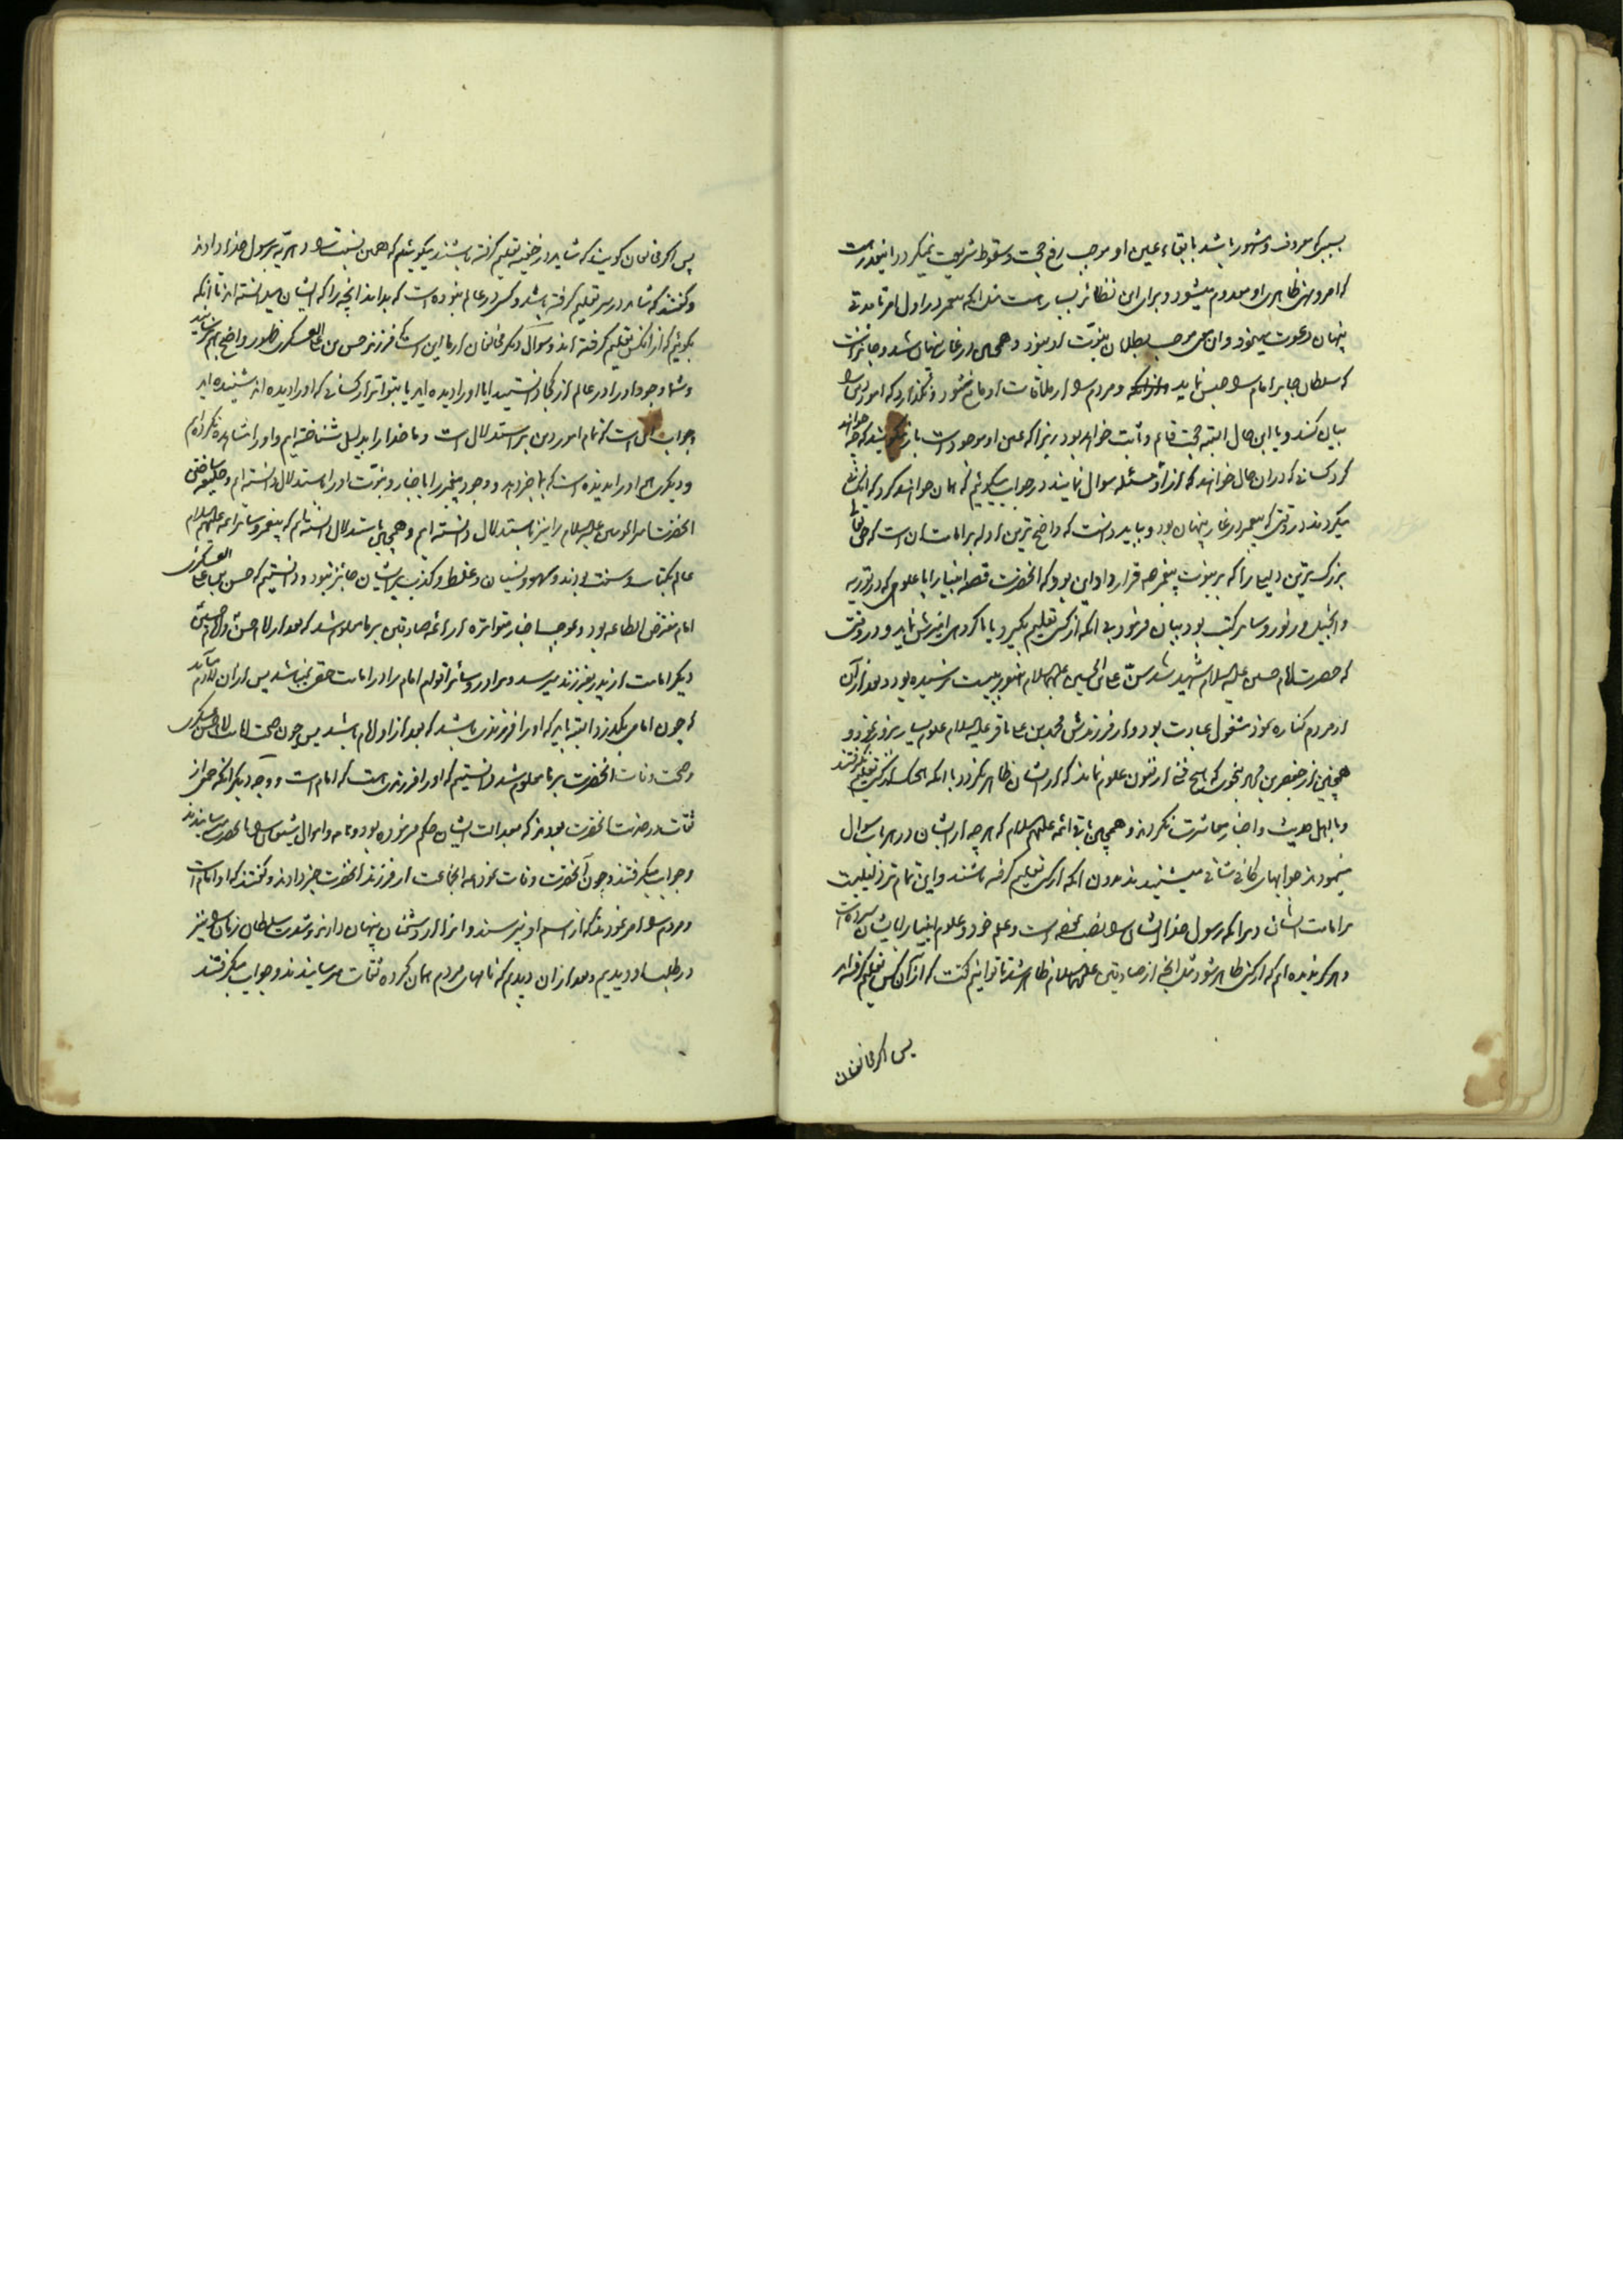 بسبب که معروف و مشهور باشد بابقاء عین او موجب رفع حجت و سقوط شریعت نمیگردد اینقدر هست
که امر و نهی ظاهری او معدوم میشود و برای این نظائر بسیار است مثل انکه پیغمبر در اول امر تا مدتی
پنهان دعوت مینمود و آن پس موجب بطلان نبوّت او نبود و همچنین در غار پنهان شد و جایز است
که سلطان جابر امام را حبس نماید و مردم را از ملاقات او مانع شود و نگذارد که امور دین را
بیان کند و با این حال البته حجت قائم و ثابت خواهد بود زیرا که عین او موجود است باز نگویند که چه خواهند
کرد کسانی که در آن حال خواهند که از او مسئله سوال نمایند در جواب میگوئیم که همان خواهند کرد که آنکسانی
میکردند در وقتی که پیغمبر در غار پنهان بود و باید دانست که واضح ترین ادله بر امامت آن است که حق تعالی
بزرگ ترین دلیلها را که بر نبوت پیغمبر ص قرار داد این بود که انحضرت قصه انبیا را با علومی که در توریه
و انجیل و زبور و سایر کتب بود بیان فرمود بی انکه از کسی تعلیم بگیرد یا با کروهی امیزش نماید و در وقتی
که حضرت امام حسین علیه السلام شهید شد سنّ علی بن الحسین علیهما السلام هنوز به بیست نرسیده بود و بعد از آن
از مردم کناره نمود مشغول عبادت بود و از فرزندش محمد بن علی باقر علیه السلام علوم بسیار بروز نمود و
همچنین از جعفر بن محمد بنحوی که هیچ فنی از فنون علوم نماند که از ایشان ظاهر نکردد با انکه هیچیک از کسی تعلیم نگرفتند
و با اهل حدیث و اخبار معاشرت نکردند و همچنین باقی ائمه علیهم السلام که هر چه از ایشان در هر باب سوال
مینمودند جوابهای کافی شافی میشنیدند بدون انکه از کسی تعلیم گرفته باشند و این تمام تر دلیلیست
بر امامت ایشان و بر انکه رسول خدا ایشان را نصب نموده است و علم خود و علوم انبیا را بایشان سپرده است
و هرگز ندیده ایم که از کسی ظاهر شود مثل انچه از صادقین علیهما السلام ظاهر شد تا توانیم گفت که از آن کس تعلیم گرفته اند
پس اگر مخالفان
پس اگر مخالفان گویند که شاید در خفیه تعلیم گرفته باشند میگوئیم که همین نسبت را دهریّه برسول خدا دادند
و گفتند که شاید در سر تعلیم گرفته باشد و کسی در عالم نبوده است که بداند انچه را که ایشان میدانسته اند تا انکه
بگوئیم که از انکس تعلیم گرفته اند و سوال دیگر مخالفان از ما این است که فرزند حسن بن علی العسکری ظهور واضحی نرسانید
و شما وجود او را در عالم از کجا دانستید ایا او را دیده اید یا بتواتر از کسانی که او را دیده اند شنیده اید
و جواب این است که تمام امور دین بر استدلال است و ما خدا را بدلیل شناخته ایم و او را مشاهده نکرده ایم
و دیگری هم او را ندیده است که بما خبر دهد و وجود پیغمبر را باخبار و نبوّت او را باستدلال دانسته ایم و خلیفه ساختن
انحضرت امیر المومنین علیه السلام را نیز باستدلال دانسته ایم و همچنین باستدلال دانسته ایم که پیغمبر و سایر ائمه علیهم السلام
عالم بکتاب و سنت بودند و سهو و نسیان و غلط و کذب بر ایشان جایز نبود و دانستیم که حسن بن علی العسکری
امام مفترض الطاعه بود و بموجب اخبار متواتره از ائمه صادقین بر ما معلوم شد که بعد از امام حسن و امام حسین
دیگر امامت از پدر بفرزند میرسد و برادر و سائر اقوام امام را در امامت حقی نمیباشد پس از ان لازم میآید
که چون امامی بگذرد البته باید که او را فرزندی باشد که بعد از او امام باشد پس چون صحت امامت امام حسن عسکری
و صحت وفات انحضرت بر ما معلوم شد دانستیم که او را فرزندی هست که امام است و وجه دیگر انکه جمعی از
ثقات در خدمت انحضرت بودند که بعدالت ایشان حکم فرموده بود و نامه و اموال شیعیان را بانحضرت میرسانیدند
و جواب میگرفتند و چون آنحضرت وفات نمود همه انجماعت از فرزند انحضرت خبر دادند و گفتند که او امام است
و مردم را امر نمودند که از اسم او نپرسند و انرا از دشمنان پنهان دارند و شدت سلطان زمان را نیز
در طلب او دیدیم و بعد از ان دیدیم که نامهای مردم همان گروه ثقات میرسانیدند و جواب میگرفتند